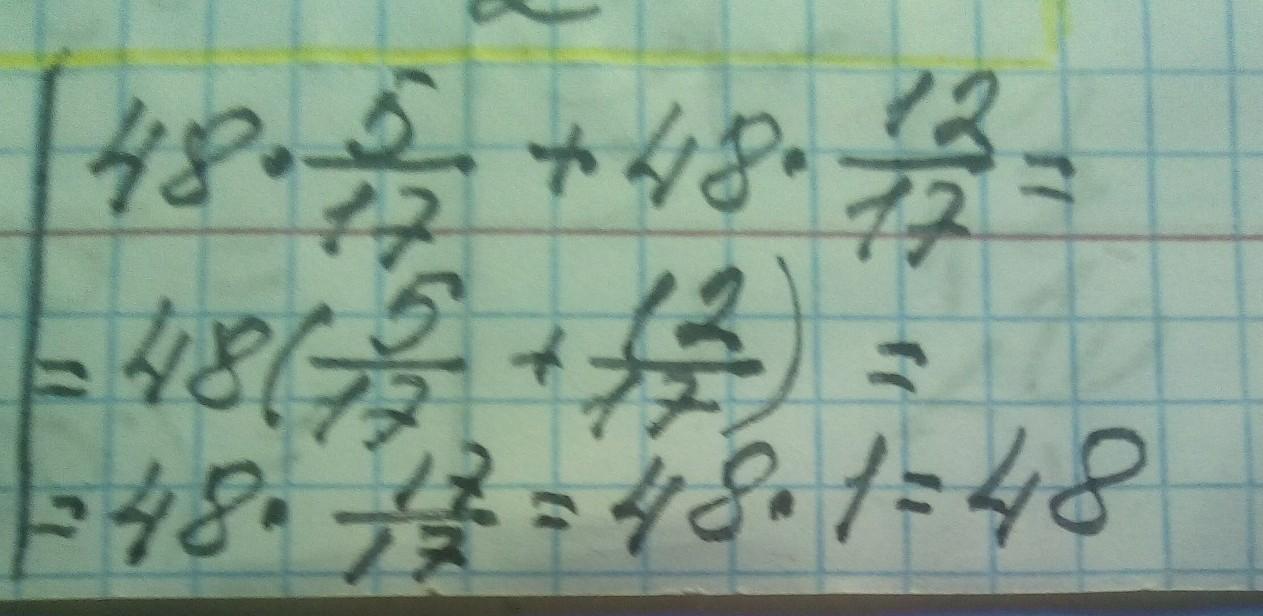 48 · 5/17 + 48 · 12/17 =
= 48(5/17 + 12/17) =
= 48 · 17/17 = 48 · 1 = 48